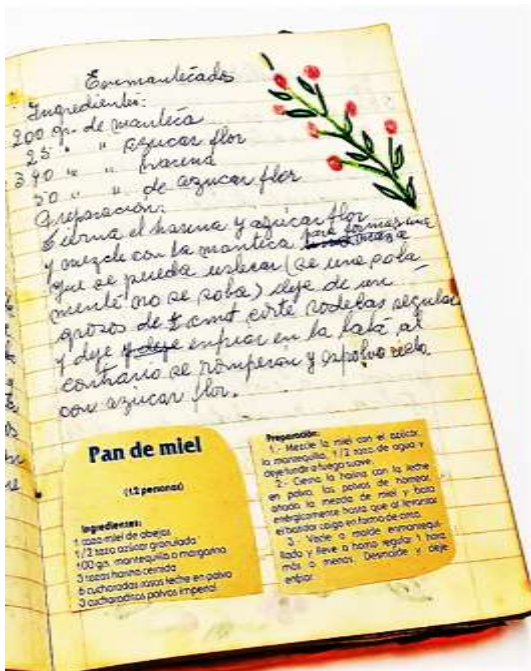 Enmantecados
Ingredientes:
200 gr. de manteca
25 " " azucar flor
340 " " harina
50 " " de azucar flor
Preparación:
Cierna el harina y azúcar flor
y mezcle con la manteca para formar una
masa
que se pueda uslerear (se une sola
mente no se soba) deje de un
grosor de 1 cmt corte rodelas regular
y deje y deje enfriar en la lata al
contrario se romperan y espolvo reelo
con azucar flor.
Pan de miel
(12 personas)
Ingredientes:
1 taza miel de abejas
1/2 taza azúcar granulada
100 grs. mantequilla o margarina
3 tazas harina cernida
6 cucharadas rasas leche en polvo
3 cucharaditas polvos imperial
Preparación:
1.- Mezcle la miel con el azúcar,
la mantequilla, 1/2 taza de agua y
deje fundir a fuego suave.
2.- Cierna la harina con la leche
en polvo, los polvos de hornear,
añada la mezcla de miel y bata
enérgicamente hasta que al levantar
el batidor caiga en forma de cinta.
3.- Vacíe a molde enmantequi-
llado y lleve a horno regular 1 hora
más o menos. Desmolde y deje
enfriar.